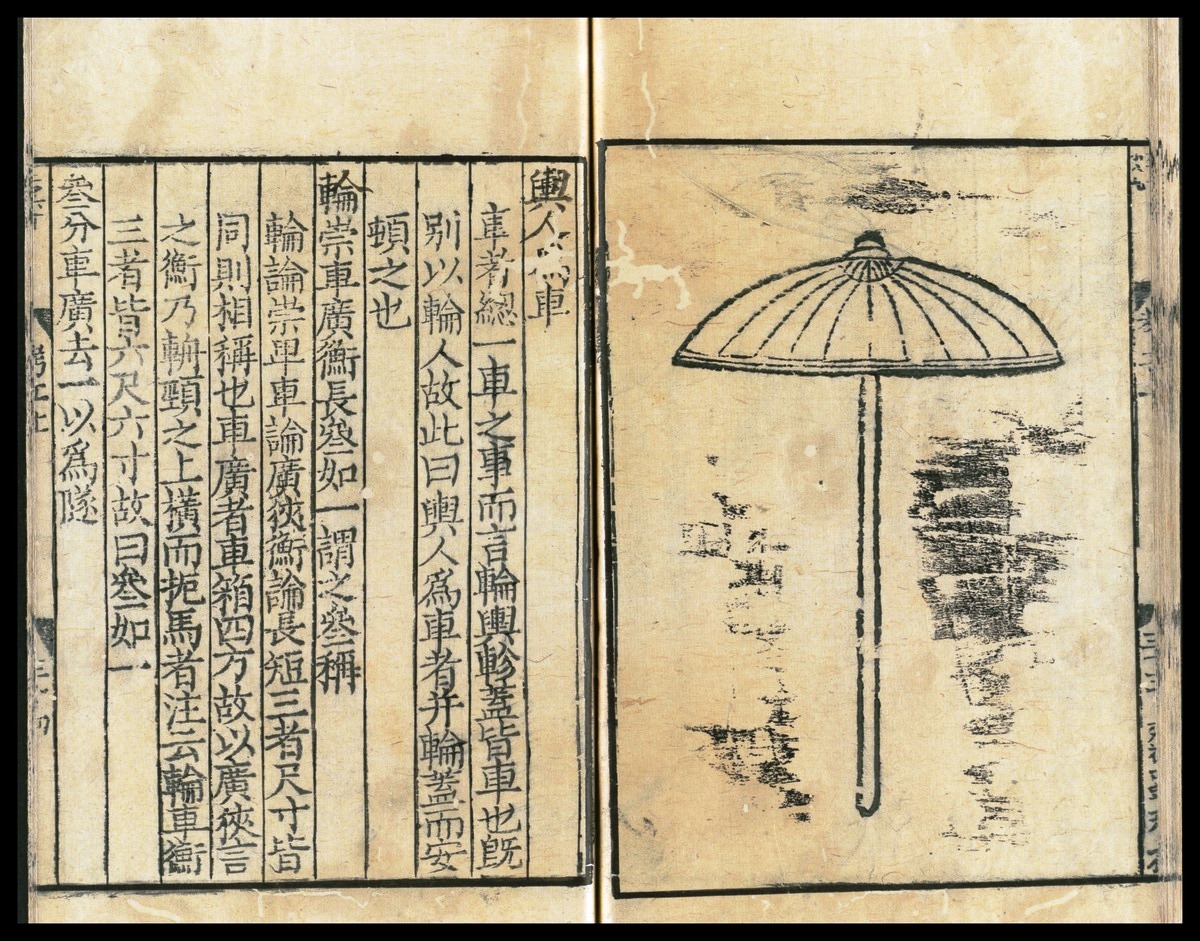 輿人為車
車者總一車之事而言輪輿軫蓋皆車也既
別以輪人故此曰輿人爲車者并輪蓋而安
頓之也
輪崇車廣衡長叅如一謂之叅稱
輪論崇卑車論廣狹衡論長短三者尺寸皆
同則相稱也車廣者車箱四方故以廣狹言
之衡乃輈頸之上橫而扼馬者注云輪車衡
三者皆六尺六寸故曰叅如一
叅分車廣去一以爲隧